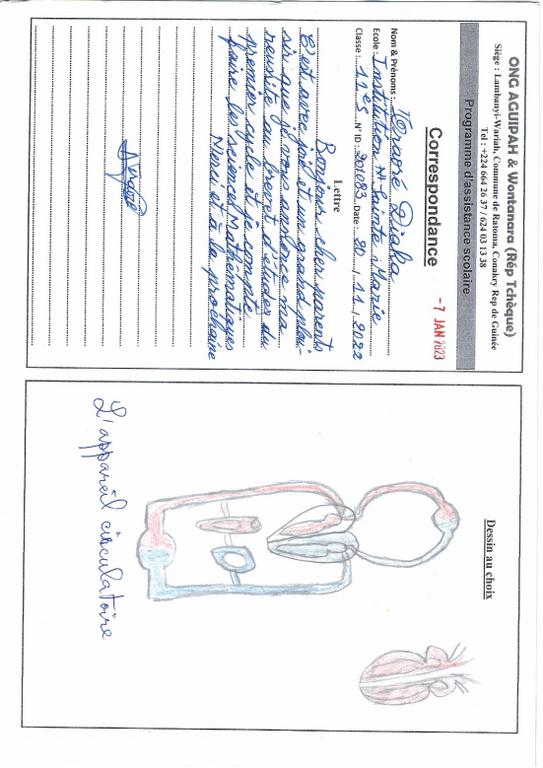 ONG AGUIPAH & Wontanara (Rép Tchèque)
Siège : Lambanyi-Wariah, Commune de Ratoma, Conakry Rep de Guinée
Tel : +224 664 26 37 / 624 03 13 38
Programme d'assistance scolaire
Correspondance
- 7 JAN 2023
Nom & Prénoms : Traoré Diaka
Ecole : Institution St Sainte Marie
Classe : 11es N° ID : 201083 Date : 20 / 11 / 2022
Lettre
Bonjour cher parents
C'est avec joie et un grand plai-
sir que je vous annonce ma
reussite au brevet d'études du
premier cycle et je compte
faire les sciences Mathématiques
Merci et à la prochaine
Dessin au choix
L'appareil circulatoire